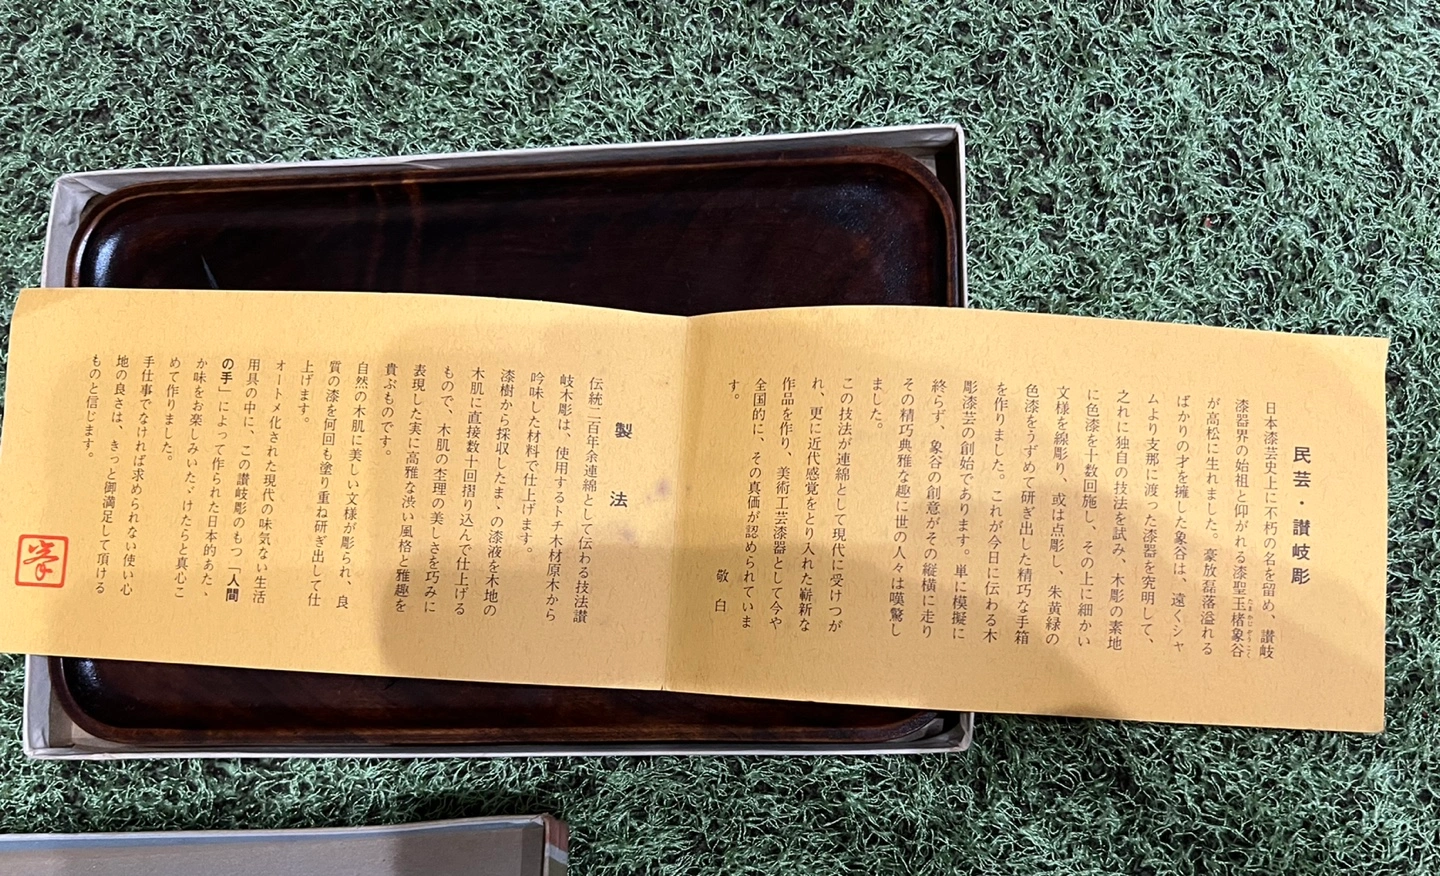 民芸・讃岐彫
日本漆芸史上に不朽の名を留め、讃岐
漆器界の始祖と仰がれる漆聖玉楮象谷
たまかじぞうこく
が高松に生れました。豪放磊落溢れる
ばかりの才を擁した象谷は、遠くシャ
ムより支那に渡った漆器を究明して、
之れに独自の技法を試み、木彫の素地
に色漆を十数回施し、その上に細かい
文様を線彫り、或は点彫し、朱黄緑の
色漆をうずめて研ぎ出した精巧な手箱
を作りました。これが今日に伝わる木
彫漆芸の創始であります。単に模擬に
終らず、象谷の創意がその縦横に走り
その精巧典雅な趣に世の人々は嘆驚し
ました。
この技法が連綿として現代に受けつが
れ、更に近代感覚をとり入れた嶄新な
作品を作り、美術工芸漆器として今や
全国的に、その真価が認められていま
す。
敬白
製法
伝統二百年余連綿として伝わる技法讃
岐木彫は、使用するトチ木材原木から
吟味した材料で仕上げます。
漆樹から採収したまゝの漆液を木地の
木肌に直接数十回摺り込んで仕上げる
もので、木肌の杢理の美しさを巧みに
表現した実に高雅な渋い風格と雅趣を
貴ぶものです。
自然の木肌に美しい文様が彫られ、良
質の漆を何回も塗り重ね研ぎ出して仕
上げます。
オートメ化された現代の味気ない生活
用具の中に、この讃岐彫のもつ「人間
の手」によって作られた日本的あたゝ
か味をお楽しみいたゞけたらと真心こ
めて作りました。
手仕事でなければ求められない使い心
地の良さは、きっと御満足して頂ける
ものと信じます。